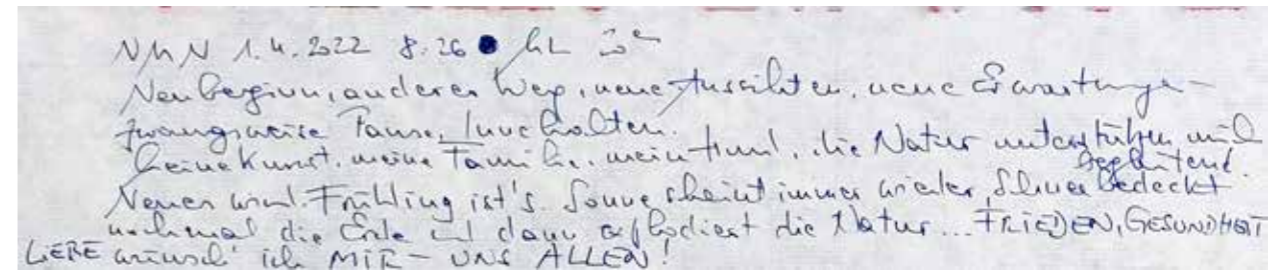 NMN 1.4.2022 8:26
Neubeginn, anderer Weg, neue Aussichten, neue Erwartunge-
zwangsweise Pause, Innehalten.
meine Familie, mein Hund, die Natur unterstützen mich
begleitend
Neues wird. Frühling ist's. Sonne scheint immer wieder, Schnee bedeckt
nochmal die Erde und dann explodiert die Natur... FRIEDEN, GESUNDHEIT
LIEBE wünsch' ich MIR - UNS ALLEN!